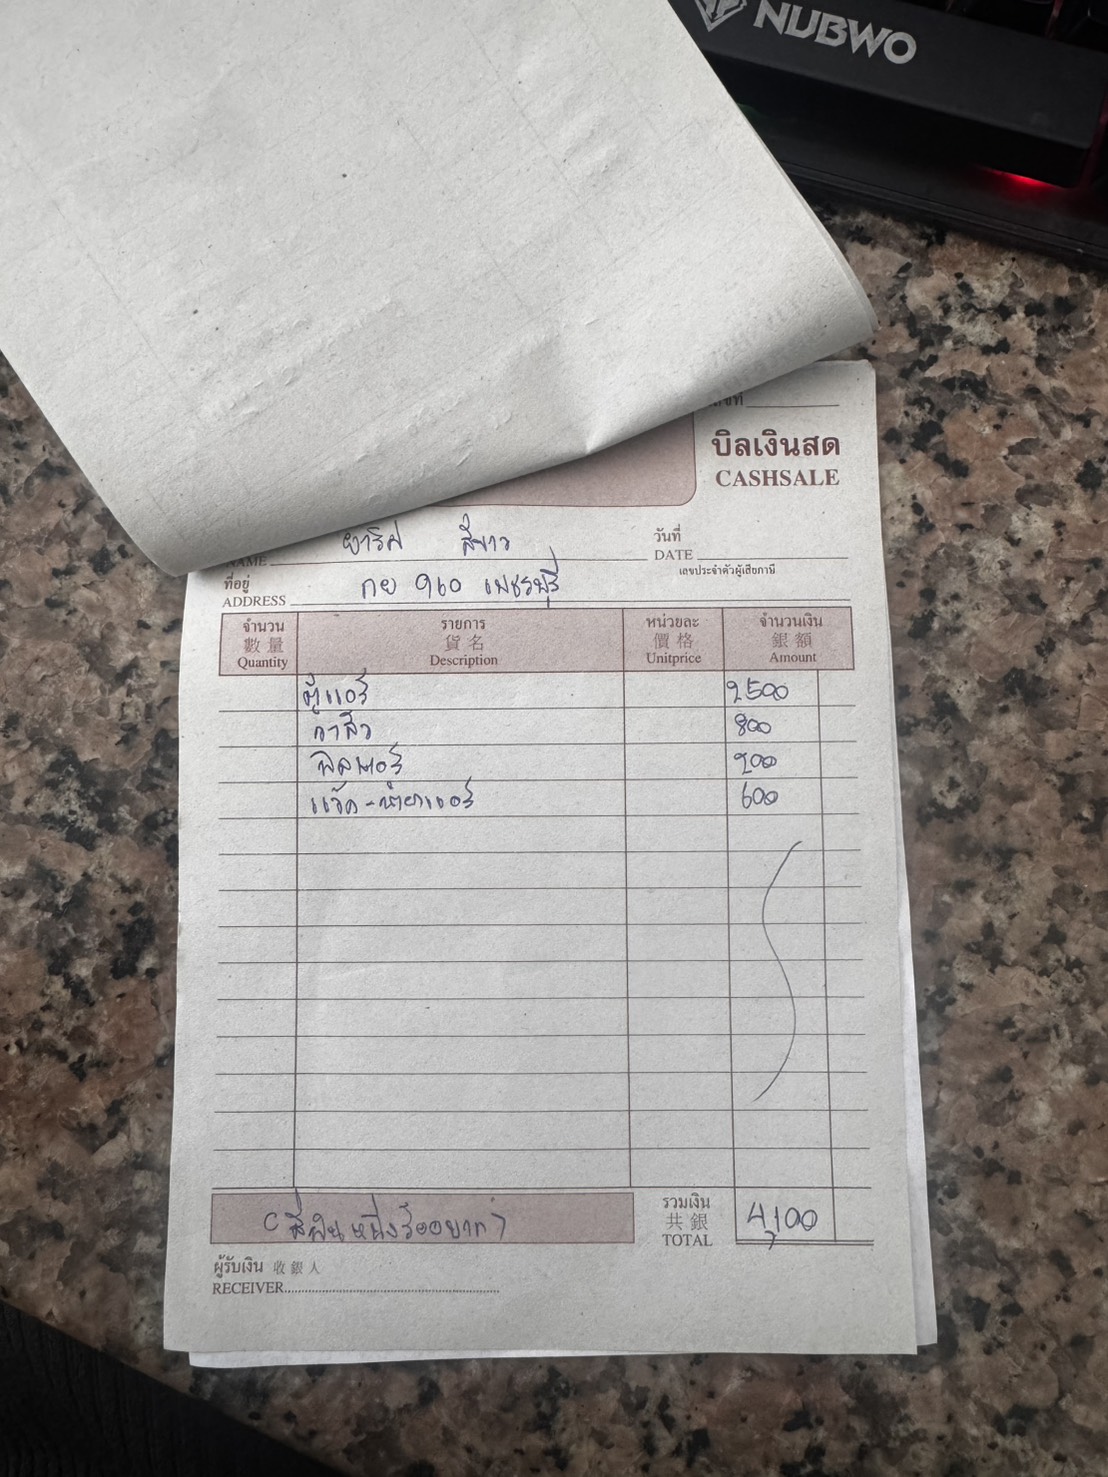 NUBWO
เลขที่
บิลเงินสด
CASHSALE
ยาริส สีขาว
วันที่
NAME
DATE
เลขประจำตัวผู้เสียภาษี
ที่อยู่ กย 960 เพชรบุรี
ADDRESS
จำนวน รายการ หน่วยละ จำนวนเงิน
數量 貨名 價格 銀額
Quantity Description Unitprice Amount
ตู้แอร์ 2500
วาล์ว 800
ฟิลเตอร์ 200
แว๊ค-น้ำยาแอร์ 600
(สี่พันหนึ่งร้อยบาท)
รวมเงิน
共銀
TOTAL
4,100
ผู้รับเงิน 收銀人
RECEIVER